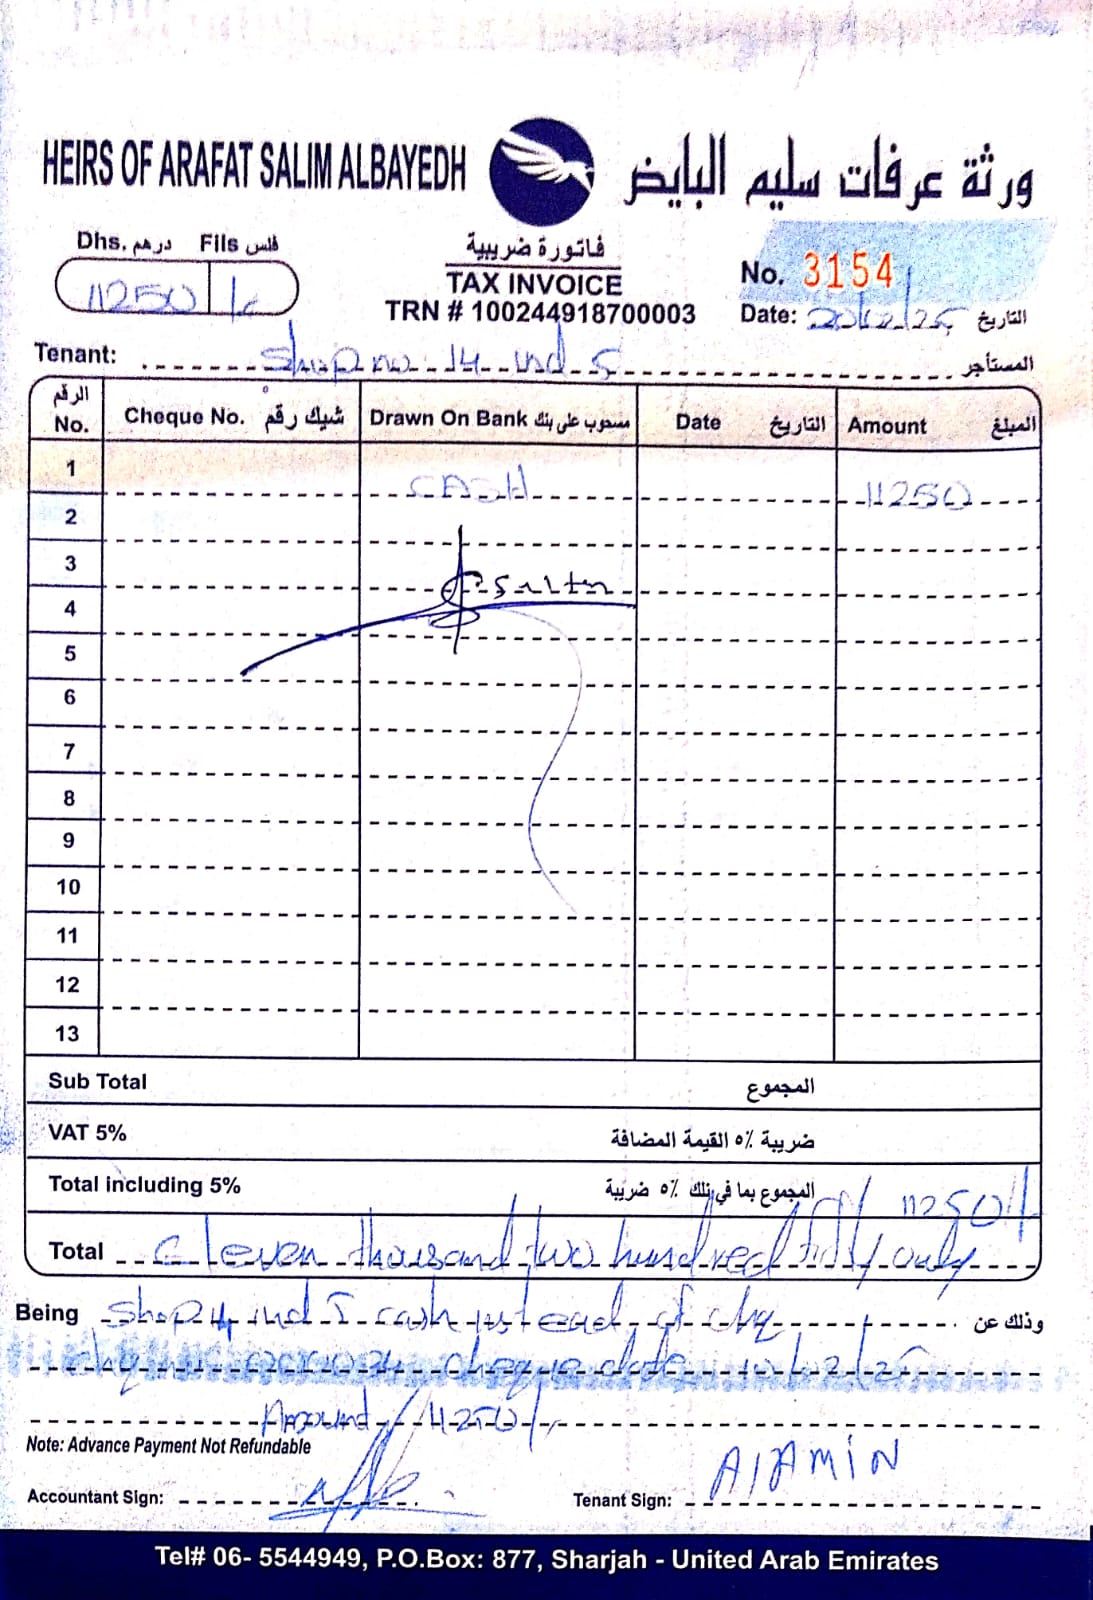 HEIRS OF ARAFAT SALIM ALBAYEDH
ورثة عرفات سليم البايض
Dhs. درهم Fils فلس
11250
فاتورة ضريبية
TAX INVOICE
TRN # 100244918700003
No. 3154
Date: 20/12/25 التاريخ
Tenant: Shop no. 14 ind 5 المستأجر
الرقم No. Cheque No. شيك رقم Drawn On Bank مسحوب على بنك Date التاريخ Amount المبلغ
1 CASH 11250
2
3
4
5
6
7
8
9
10
11
12
13
Sub Total المجموع
VAT 5% ضريبة ٥٪ القيمة المضافة
Total including 5% المجموع بما في ذلك ٥٪ ضريبة 11250/-
Total Eleven thousand two hundred fifty only
Being Shop 14 ind 5 cash instead of chq وذلك عن
cheque date
Amount 11250/-
Note: Advance Payment Not Refundable
Accountant Sign:
Tenant Sign: AlAMiN
Tel# 06- 5544949, P.O.Box: 877, Sharjah - United Arab Emirates